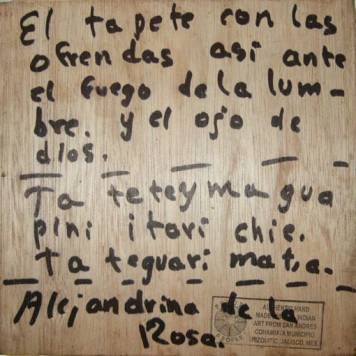 El tapete con las
ofrendas asi ante
el fuego de la lum-
bre. y el ojo de
dios.
Ta tetey ma gua
pini itari chie.
ta teguari matia.
Alejandrina de la
Rosa.
AUTHENTIC HAND
MADE INDIAN
ART FROM SAN ANDRES
COHAMIATA MUNICIPIO
MEZQUITIC, JALISCO, MEX.